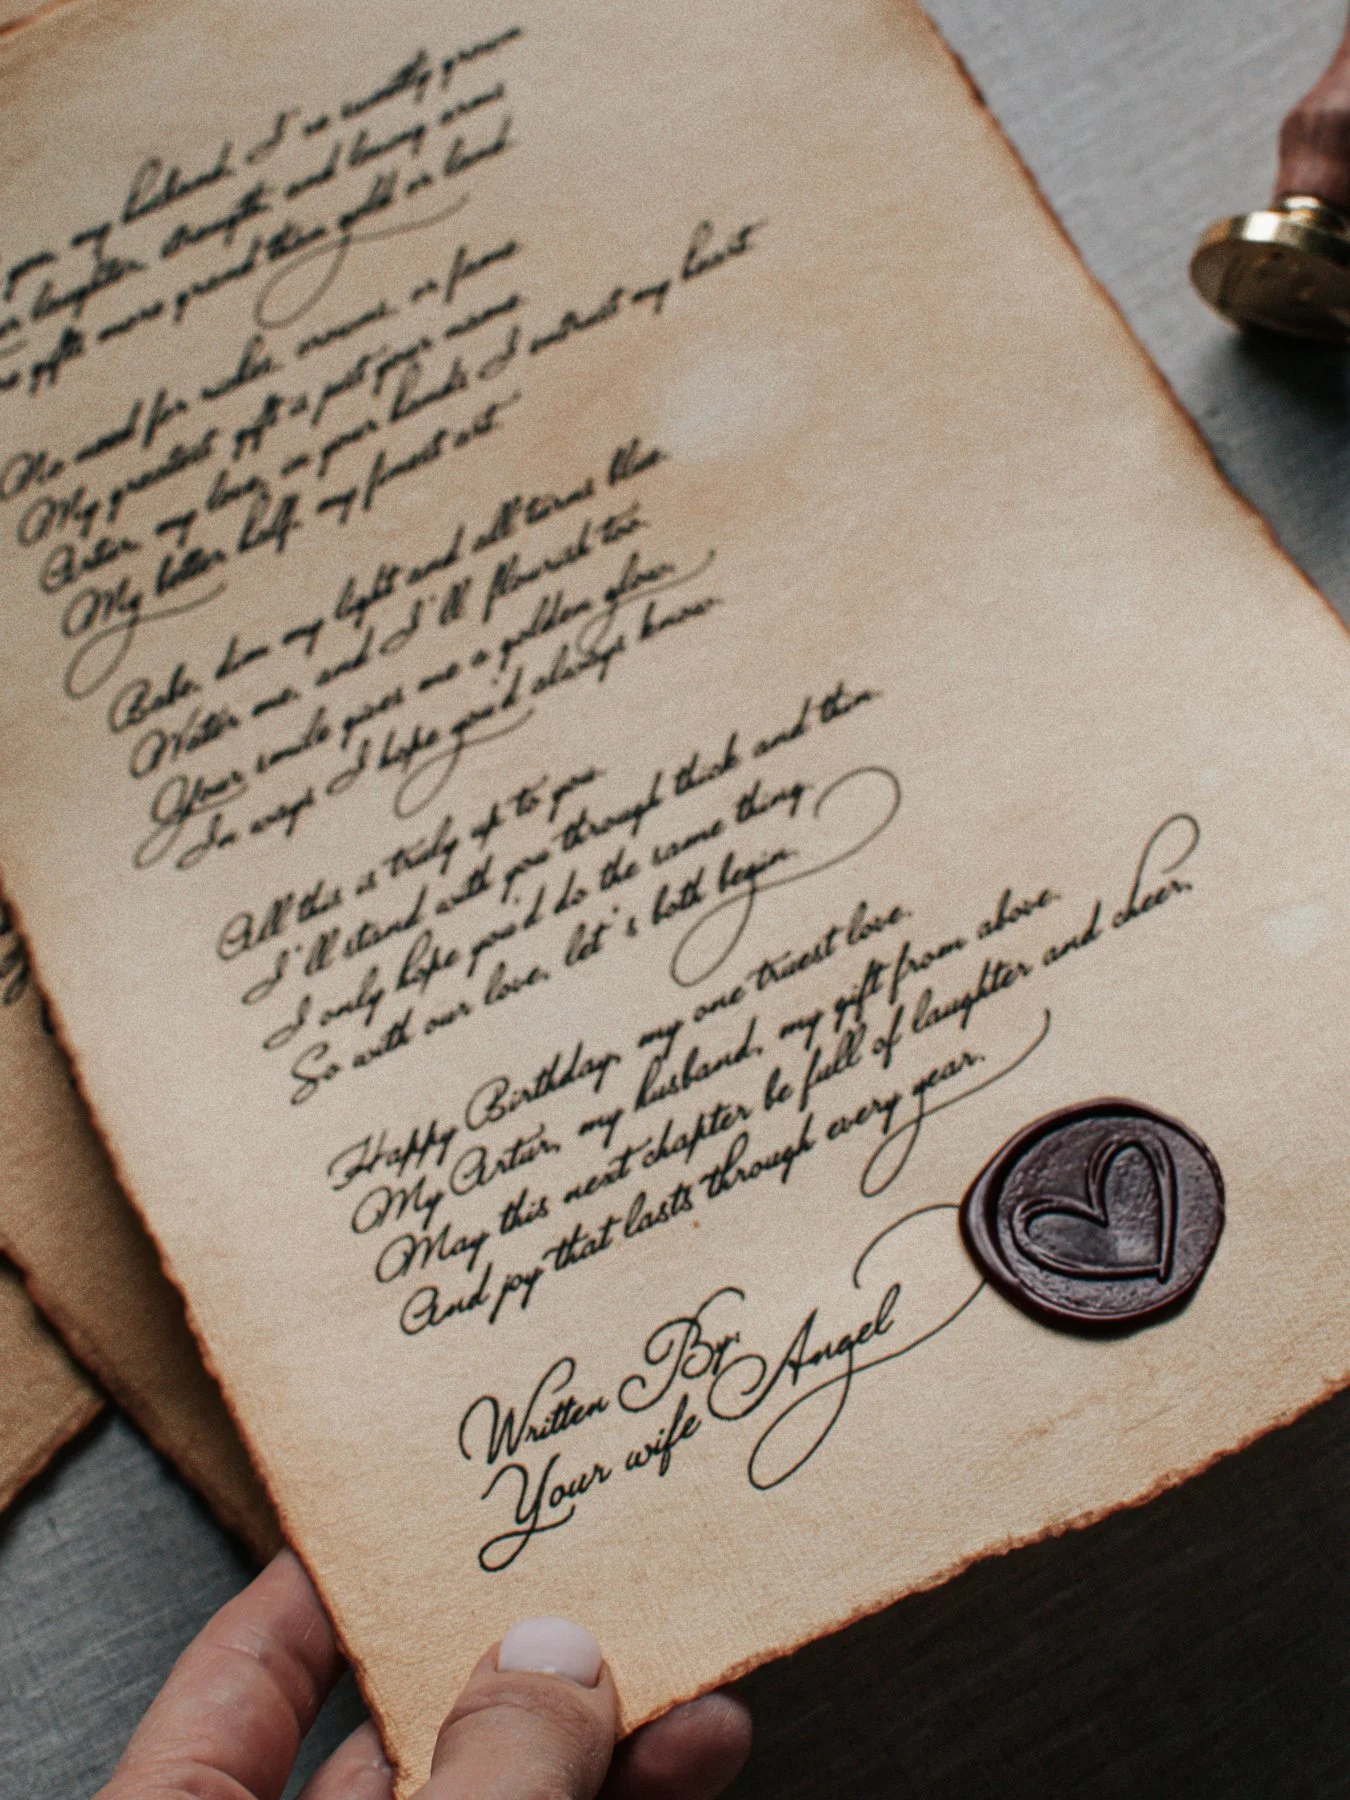 you, my husband, I've sweetly grown
laughter, strength and loving arms
gifts more grand than gold or land.
No need for riches, crowns, or fame
My greatest gift is just your name.
Artur, my love, in your hands I entrust my heart
My better half, my finest art.
Babe, dim my light and all turns blue.
Water me, and I'll flourish too.
Your smile gives me a golden glow,
In ways I hope you'd always know.
All this is truly up to you.
I'll stand with you through thick and thin.
I only hope you'd do the same thing.
So with our love, let's both begin.
Happy Birthday, my one truest love.
My Artur, my husband, my gift from above.
May this next chapter be full of laughter and cheer,
And joy that lasts through every year.
Written By:
Your wife Angel